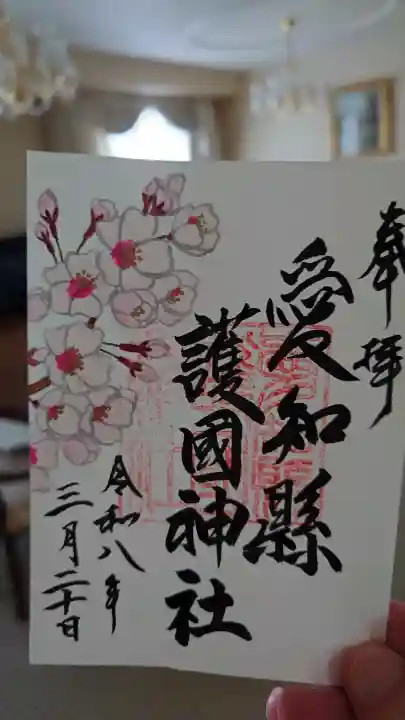 奉拝
愛知縣
護國神社
令和八年
三月二十日